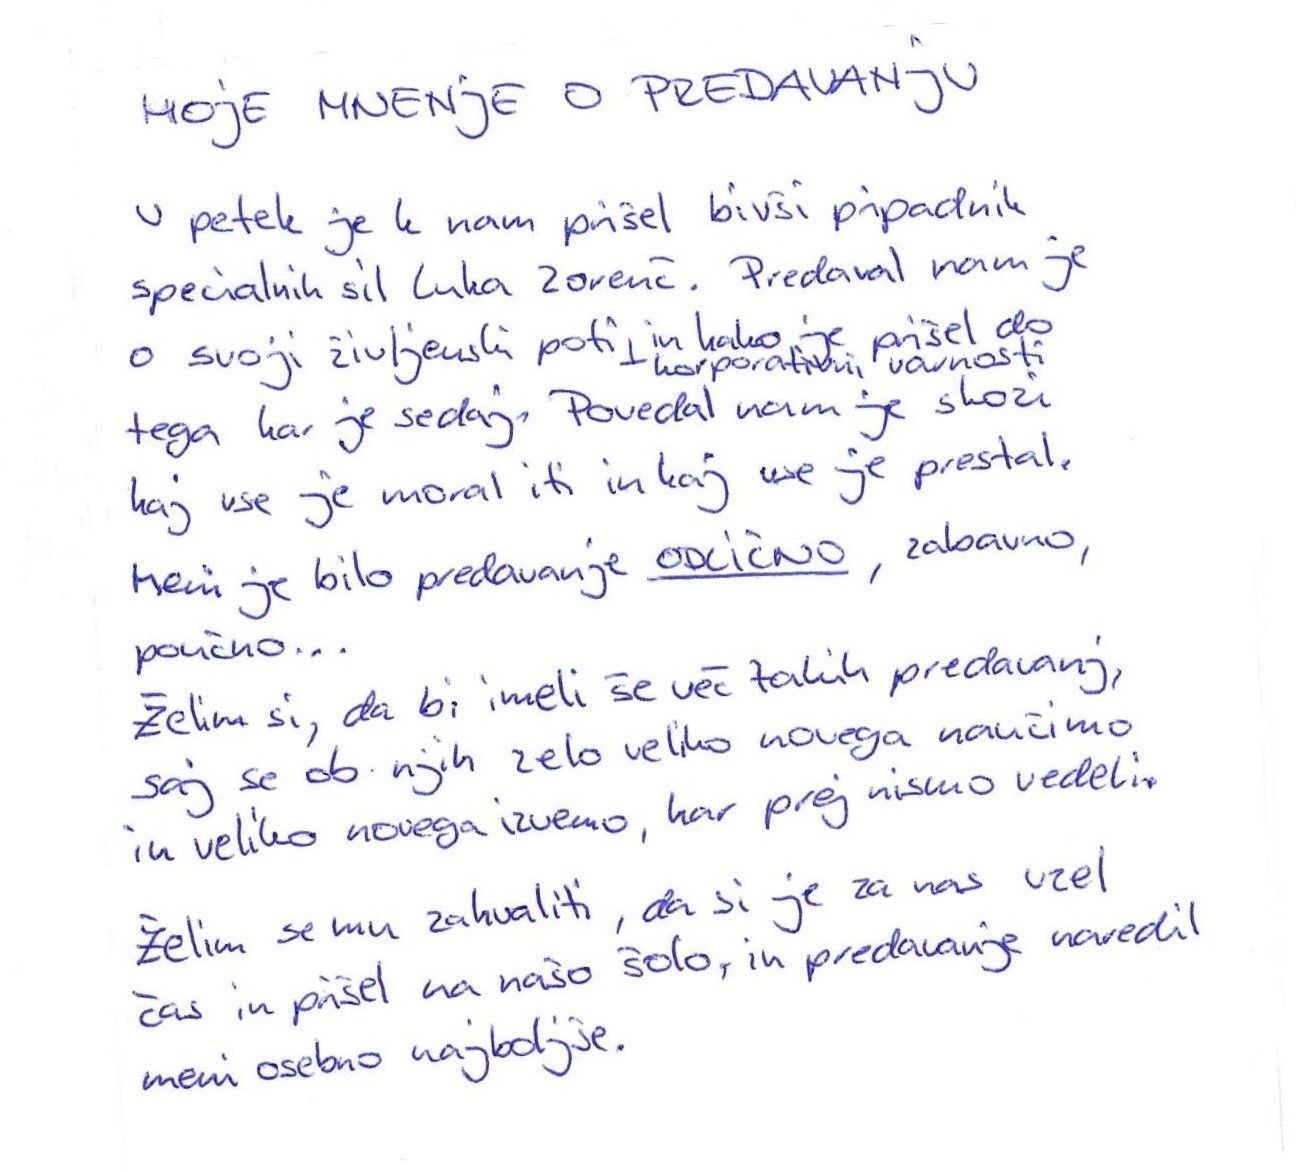 MOJE MNENJE O PREDAVANJU
V petek je k nam prišel bivši pripadnik
specialnih sil Luka Zorenč. Predaval nam je
o svoji življenski poti, in kako je prišel do
korporativni varnosti
tega kar je sedaj. Povedal nam je skozi
kaj vse je moral iti in kaj vse je prestal.
Meni je bilo predavanje ODLIČNO, zabavno,
poučno...
Želim si, da bi imeli še več takih predavanj,
saj se ob njih zelo veliko novega naučimo
in veliko novega izvemo, kar prej nismo vedeli.
Želim se mu zahvaliti, da si je za nas vzel
čas in prišel na našo šolo, in predavanje naredil
meni osebno najboljše.